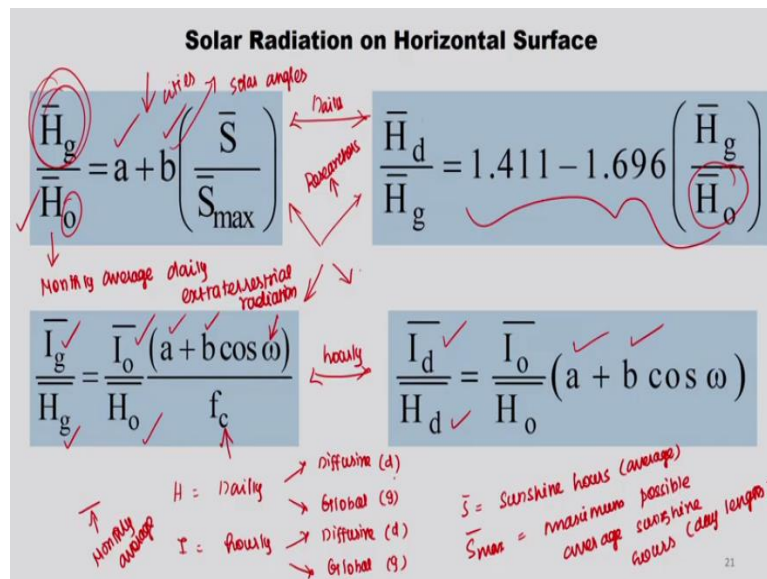 Solar Radiation on Horizontal Surface
cities
solar angles
H̅g / H̅o = a + b ( S̅ / S̅max )
Daily
H̅d / H̅g = 1.411 − 1.696 ( H̅g / H̅o )
Researchers
Monthly average daily
extraterrestrial
radiation
I̅g / H̅g = I̅o / H̅o (a + b cos ω) / fc
hourly
I̅d / H̅d = I̅o / H̅o (a + b cos ω)
Monthly
average
H = Daily
Diffusine (d)
Global (g)
I = hourly
Diffusine (d)
Global (g)
S̅ = Sunshine hours (average)
S̅max = maximum possible
average sunshine
hours (day length)
21